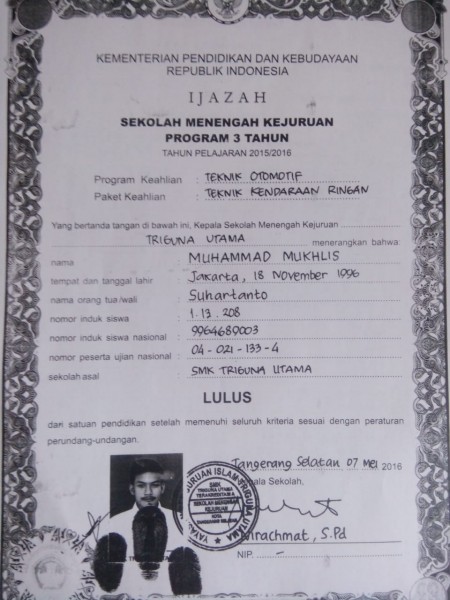 KEMENTERIAN PENDIDIKAN DAN KEBUDAYAAN
REPUBLIK INDONESIA
IJAZAH
SEKOLAH MENENGAH KEJURUAN
PROGRAM 3 TAHUN
TAHUN PELAJARAN 2015/2016
Program Keahlian : TEKNIK OTOMOTIF
Paket Keahlian : TEKNIK KENDARAAN RINGAN
Yang bertanda tangan di bawah ini, Kepala Sekolah Menengah Kejuruan
TRIGUNA UTAMA menerangkan bahwa:
nama : MUHAMMAD MUKHLIS
tempat dan tanggal lahir : Jakarta, 18 November 1996
nama orang tua/wali : Suhartanto
nomor induk siswa : 1.13.208
nomor induk siswa nasional : 9964689003
nomor peserta ujian nasional : 04-021-133-4
sekolah asal : SMK TRIGUNA UTAMA
LULUS
dari satuan pendidikan setelah memenuhi seluruh kriteria sesuai dengan peraturan
perundang-undangan.
Tangerang Selatan 07 Mei 2016
Kepala Sekolah,
SMK
TRIGUNA UTAMA
SEKOLAH MENENGAH
KEJURUAN
TRIGUNA UTAMA
S.Pd
NIP. -